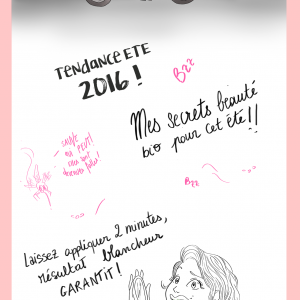 TENDANCE ETE
2016 !
Bzz
Mes secrets beauté
bio pour cet été !!
SAUVE
QUI PEUT!
Bzz
Laissez appliquer 2 minutes,
résultat blancheur
GARANTIT!